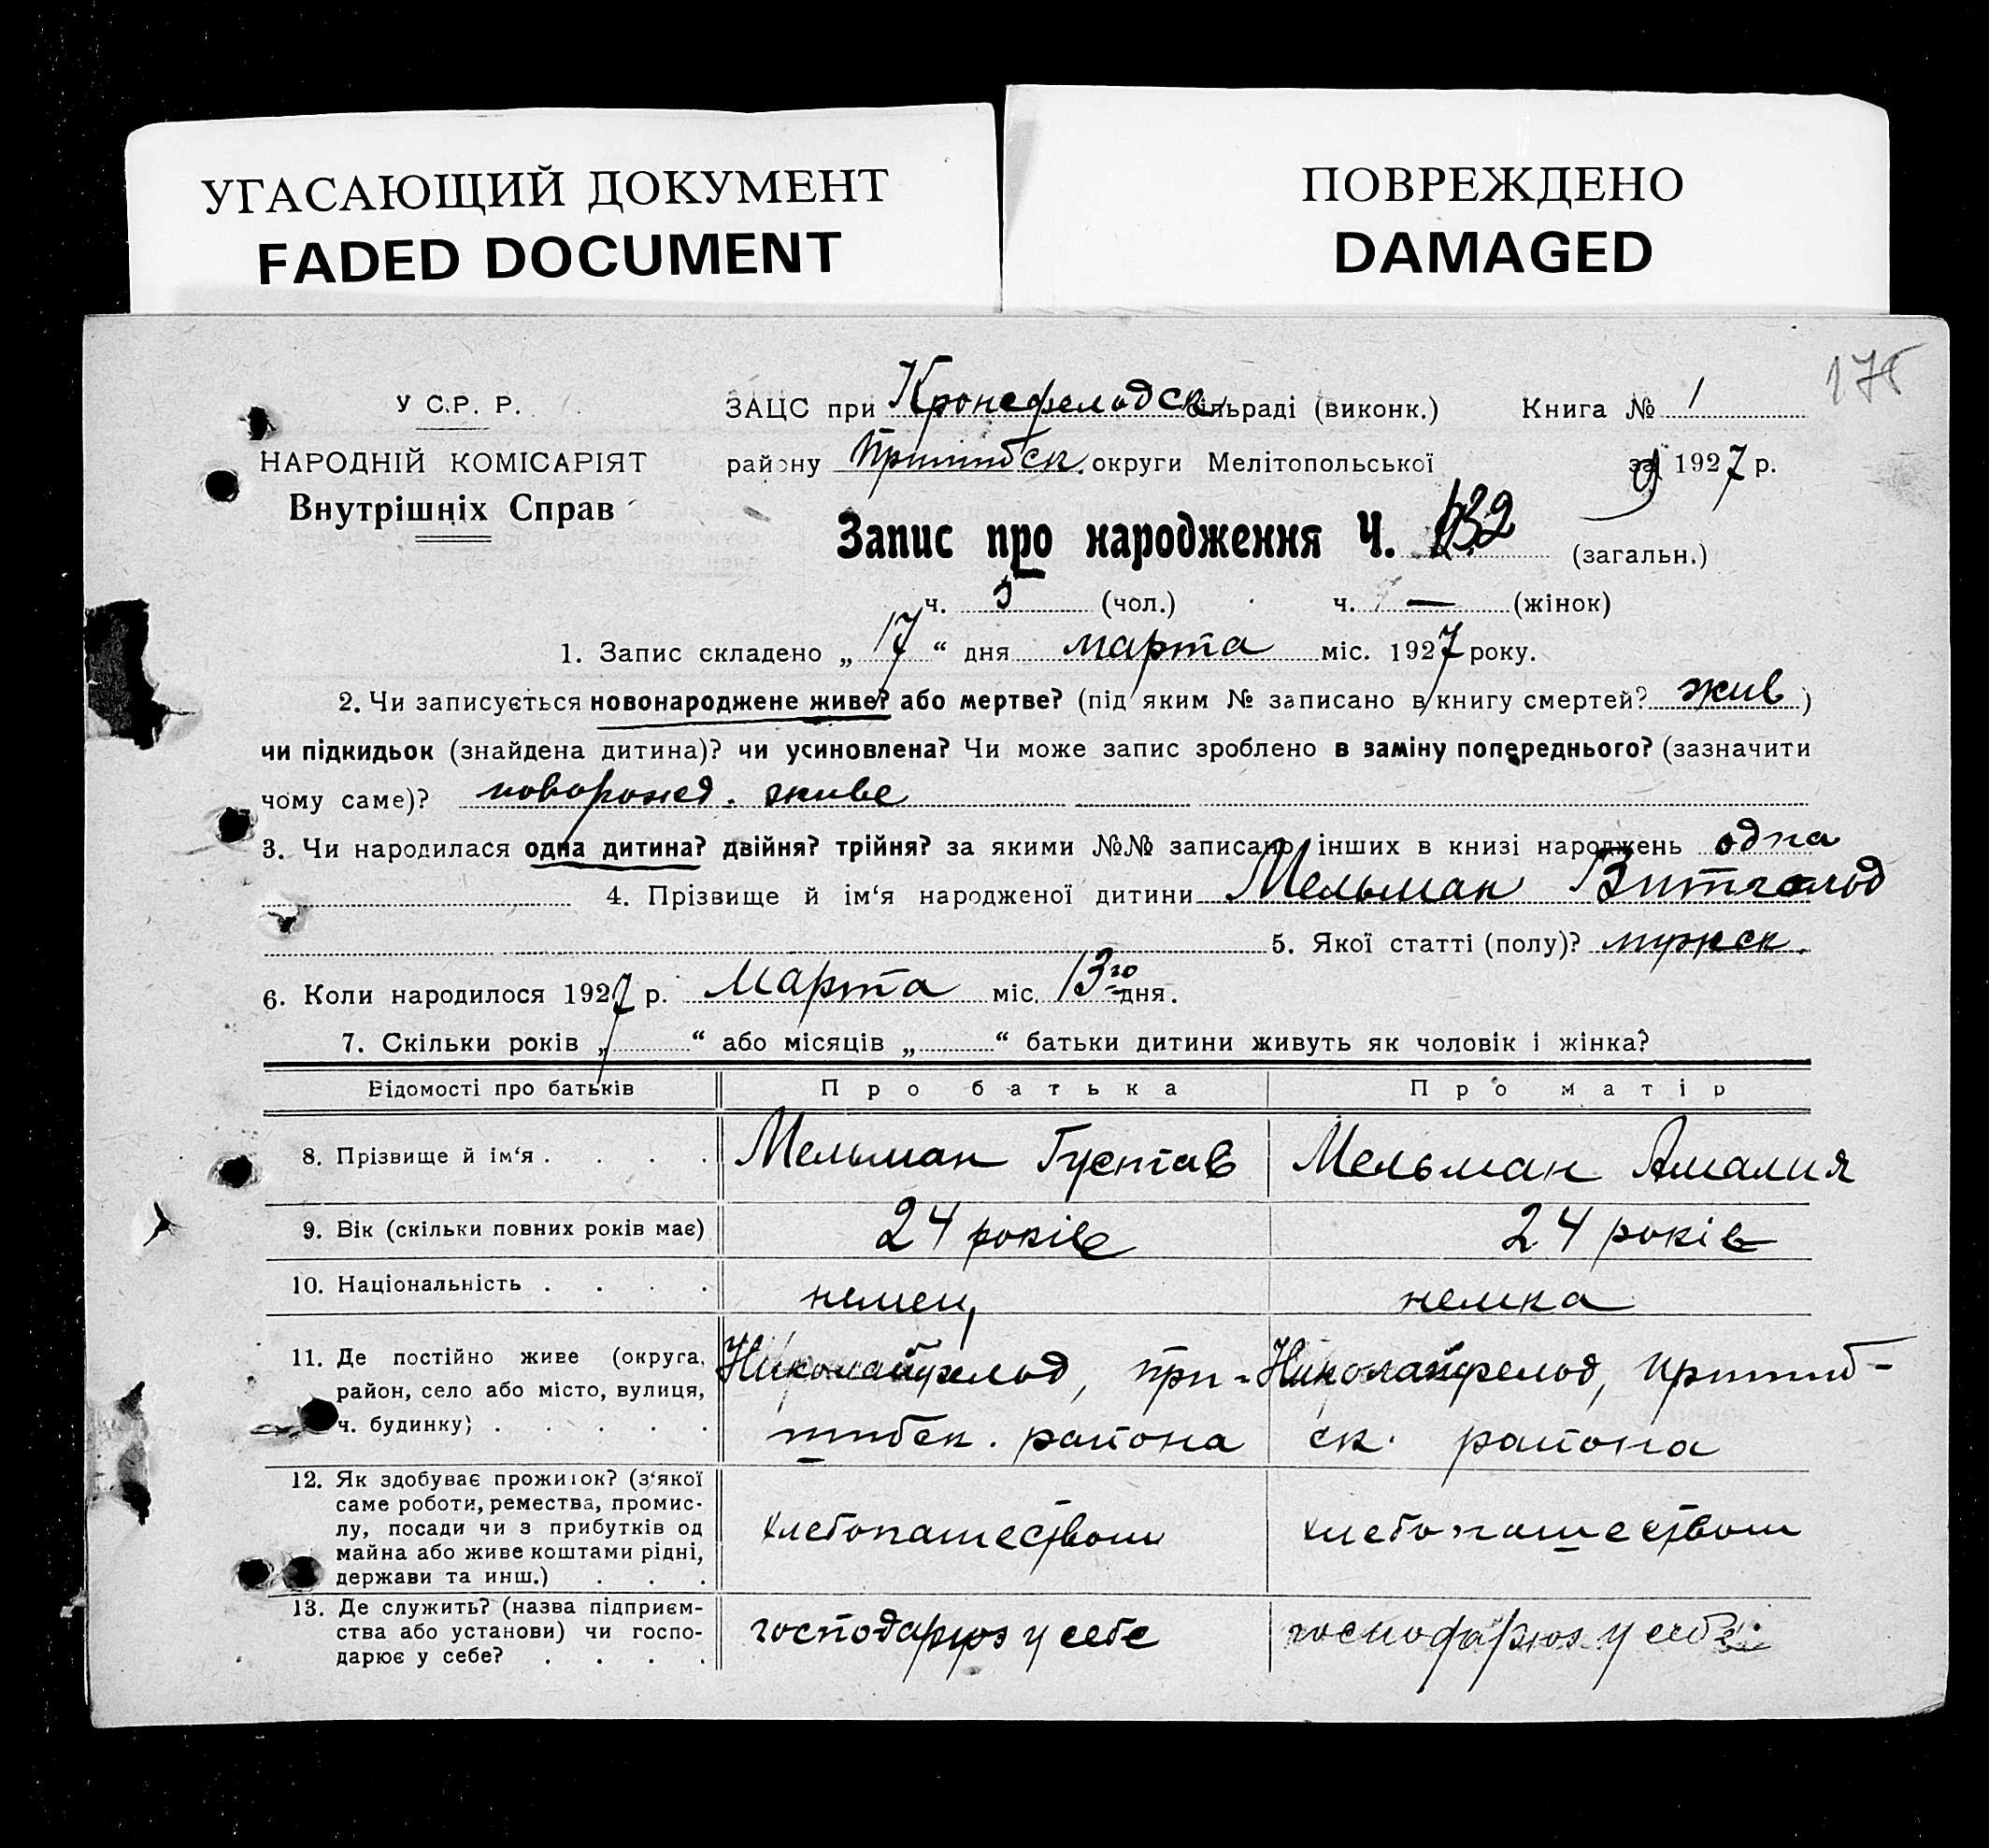 УГАСАЮЩИЙ ДОКУМЕНТ
FADED DOCUMENT
ПОВРЕЖДЕНО
DAMAGED
У С.Р. Р.
НАРОДНІЙ КОМІСАРІЯТ
Внутрішніх Справ
ЗАЦС при Кронефельдск. сільраді (виконк.) Книга № 1
району Пришибск. округи Мелітопольської за 1927 р.
Запис про народження Ч. 132 (загальн.)
ч. 3 (чол.) ч. — (жінок)
1. Запис складено „ 17 “ дня марта міс. 1927 року.
2. Чи записується новонароджене живе? або мертве? (під яким № записано в книгу смертей? жив )
чи підкидьок (знайдена дитина)? чи усиновлена? Чи може запис зроблено в заміну попереднього? (зазначити
чому саме)? новорожд. живе
3. Чи народилася одна дитина? двійня? трійня? за якими №№ записано інших в книзі народжень одна
4. Прізвище й ім‘я народженої дитини Мельман Витгольд
5. Якої статті (полу)? мужск.
6. Коли народилося 1927 р. Марта міс. 13го дня.
7. Скільки років „ “ або місяців „ “ батьки дитини живуть як чоловік і жінка?
Відомості про батьків Про батька Про матір
8. Прізвище й ім‘я . . . . Мельман Густав Мельман Амалия
9. Вік (скільки повних років має) 24 років 24 років
10. Національність . . . . немец немка
11. Де постійно живе (округа, Николайфельд, при- Николайфельд, Пришиб-
район, село або місто, вулиця,
ч. будинку) . . . . . шибск. района ск. района
12. Як здобуває прожиток? (з‘якої
саме роботи, ремества, промис-
лу, посади чи з прибутків од хлебопашеством хлебопашеством
майна або живе коштами рідні,
держави та инш.) . . .
13. Де служить? (назва підприєм- господарюэ у себе господарюэ у себе
ства або установи) чи госпо-
дарює у себе? . . . .